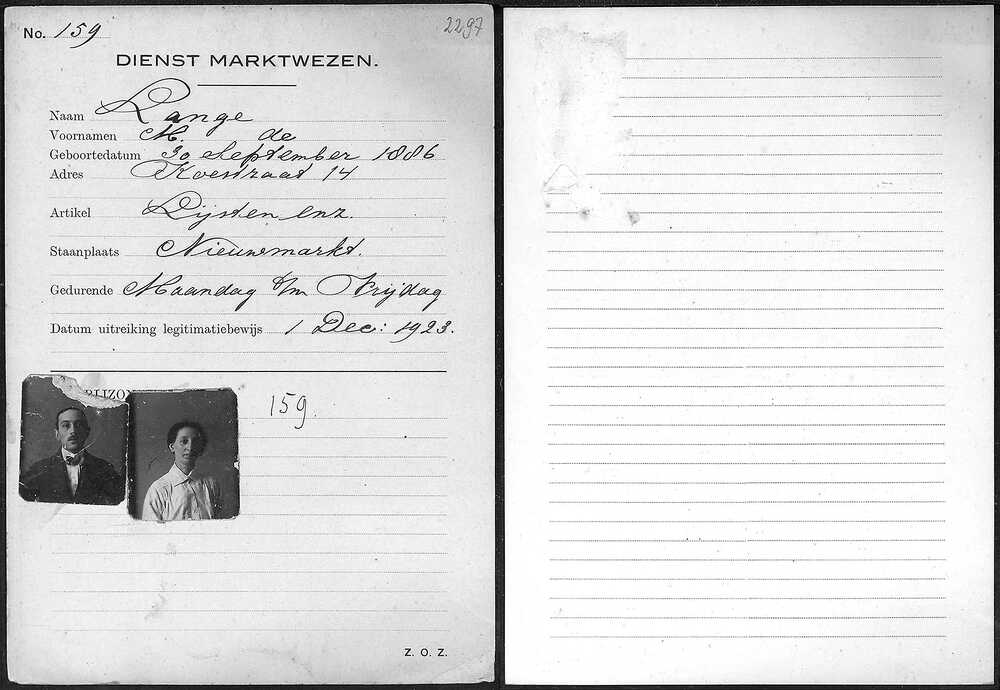 No. 159
2297
DIENST MARKTWEZEN.
Naam Lange
Voornamen M. de
Geboortedatum 30 September 1886
Adres Koestraat 14
Artikel Lijsten enz.
Staanplaats Nieuwmarkt.
Gedurende Maandag t/m Vrijdag
Datum uitreiking legitimatiebewijs 1 Dec: 1923.
159.
Z. O. Z.